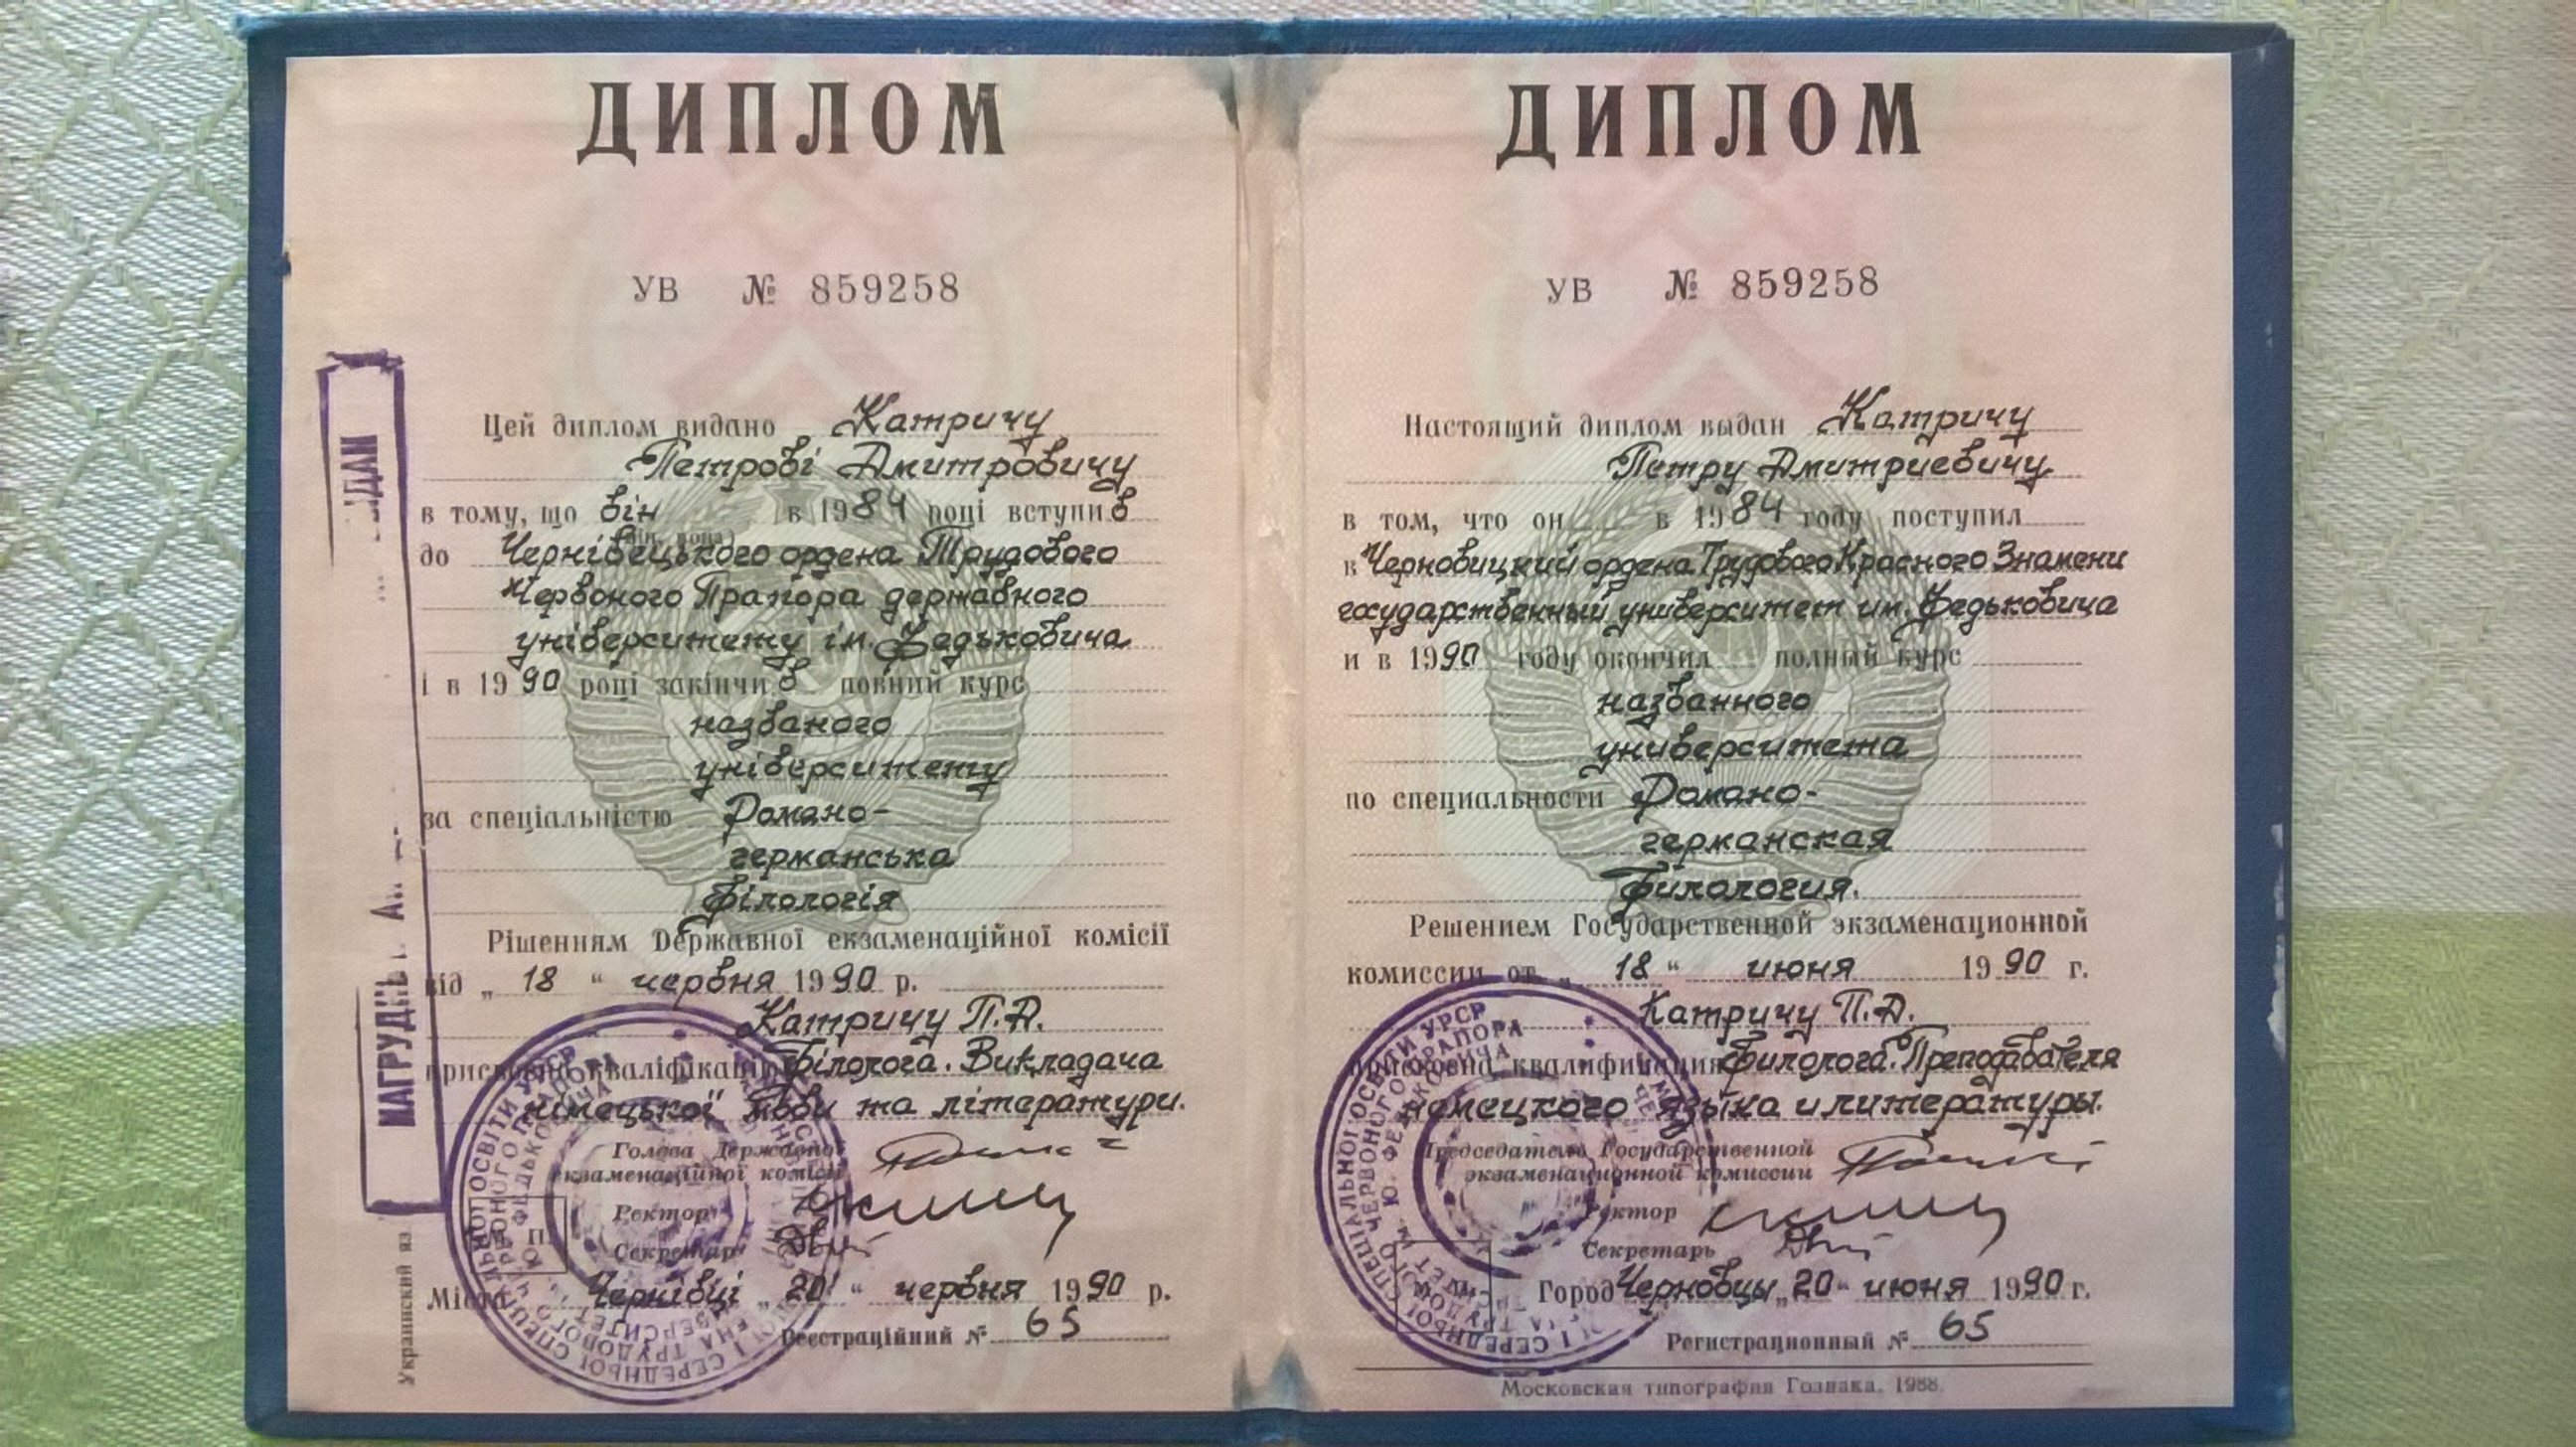 ДИПЛОМ
УВ № 859258
Цей диплом видано Катричу
Петрові Дмитровичу
в тому, що він в 1984 році вступив
(він, вона)
до Чернівецького ордена Трудового
Червоного Прапора державного
університету ім. Федьковича
і в 1990 році закінчив повний курс
названого
університету
за спеціальністю Романо-
германська
філологія
Рішенням Державної екзаменаційної комісії
від „ 18 “ червня 1990 р.
Катричу П.Д.
присвоєно кваліфікацію філолога. Викладача
німецької мови та літератури.
Голова Державної
екзаменаційної комісії
Ректор
Секретар
М. П.
Місто Чернівці „ 20 “ червня 1990 р.
Реєстраційний № 65
НАГРУДН
Украинский яз
ДИПЛОМ
УВ № 859258
Настоящий диплом выдан Катричу
Петру Дмитриевичу
в том, что он в 1984 году поступил
в Черновицкий ордена Трудового Красного Знамени
государственный университет им. Федьковича
и в 1990 году окончил полный курс
названного
университета
по специальности Романо-
германская
филология.
Решением Государственной экзаменационной
комиссии от „ 18 “ июня 1990 г.
Катричу П.Д.
присвоена квалификация филолога. Преподавателя
немецкого языка и литературы.
Председатель Государственной
экзаменационной комиссии
Ректор
Секретарь
Город Черновцы „ 20 “ июня 1990 г.
Регистрационный № 65
Московская типография Гознака. 1988.